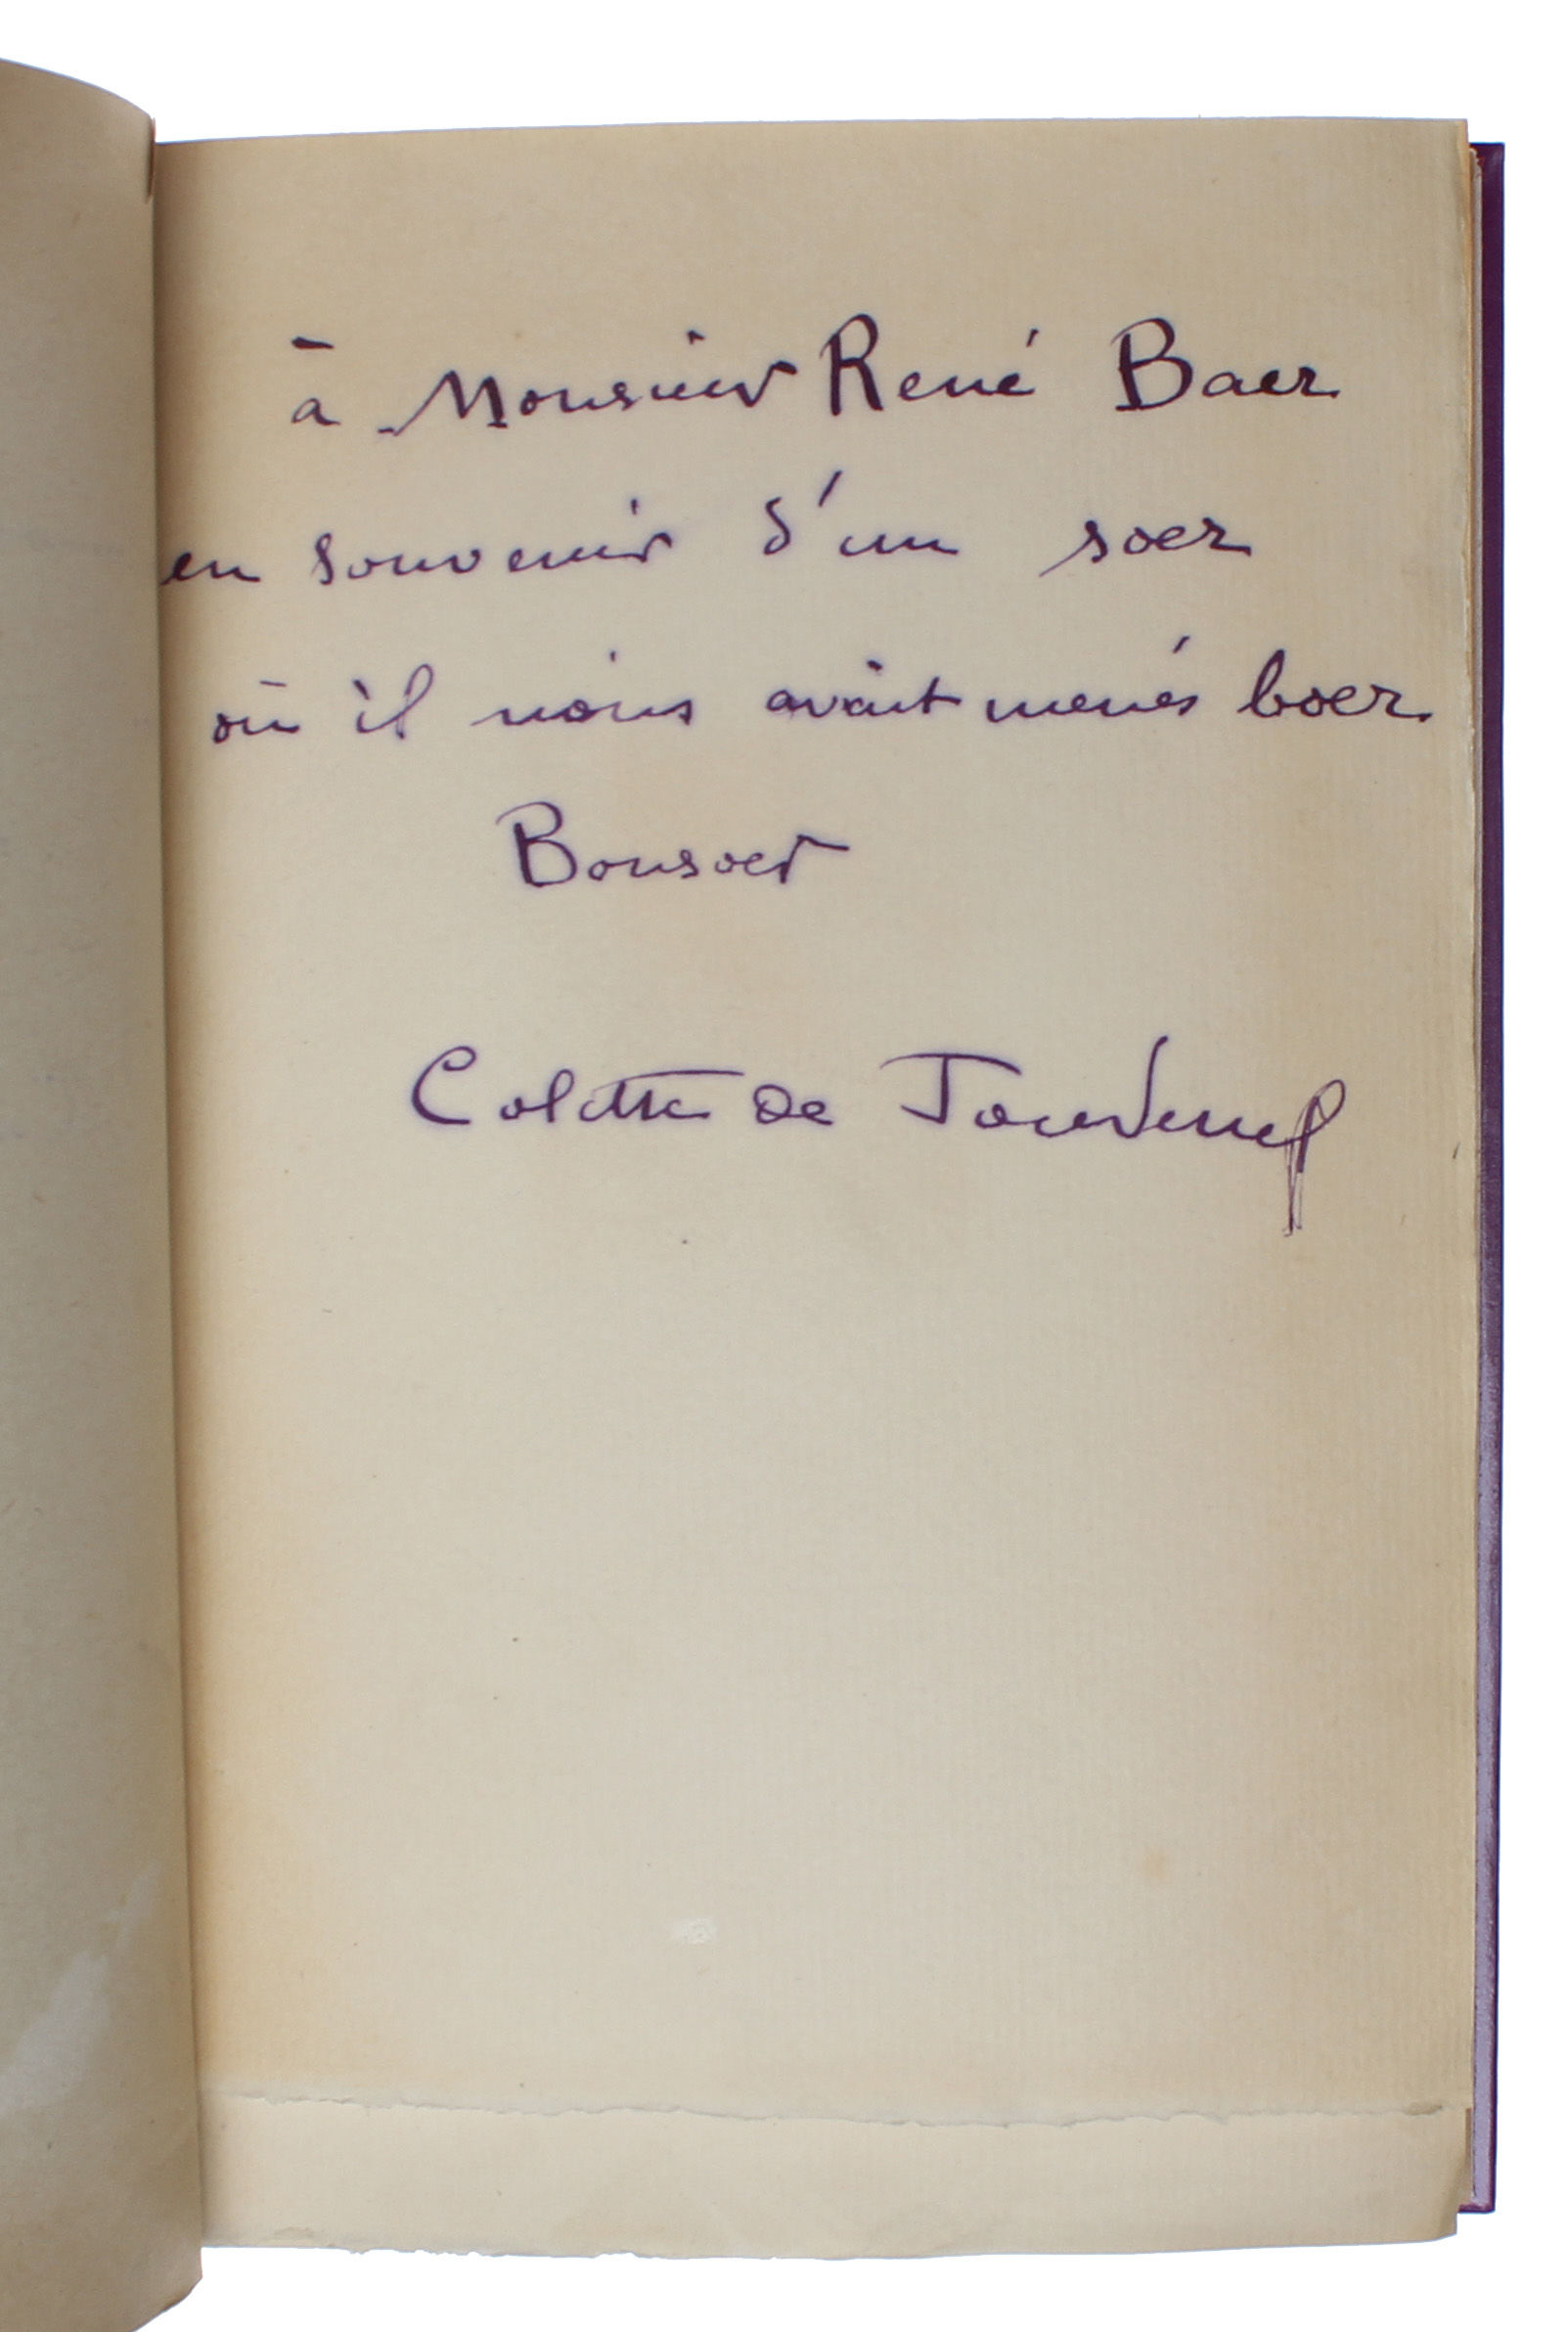 à Monsieur René Baer
en souvenir d'un soer
où il nous avait menés boer
Bonsoer
Colette de Jouvenel